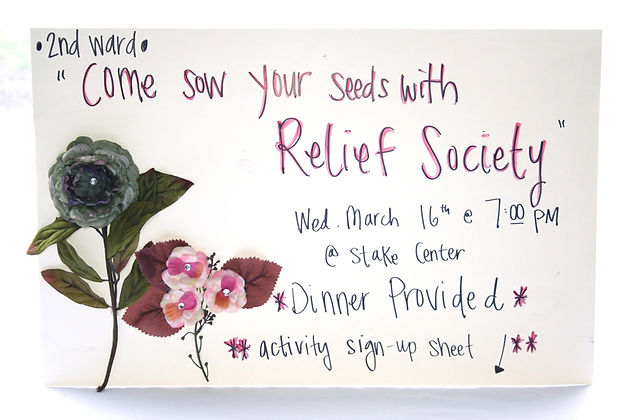 •2nd ward•
"Come sow your seeds with
Relief Society"
Wed. March 16th @ 7:00 PM
@ Stake Center
*Dinner Provided*
** activity sign-up sheet **